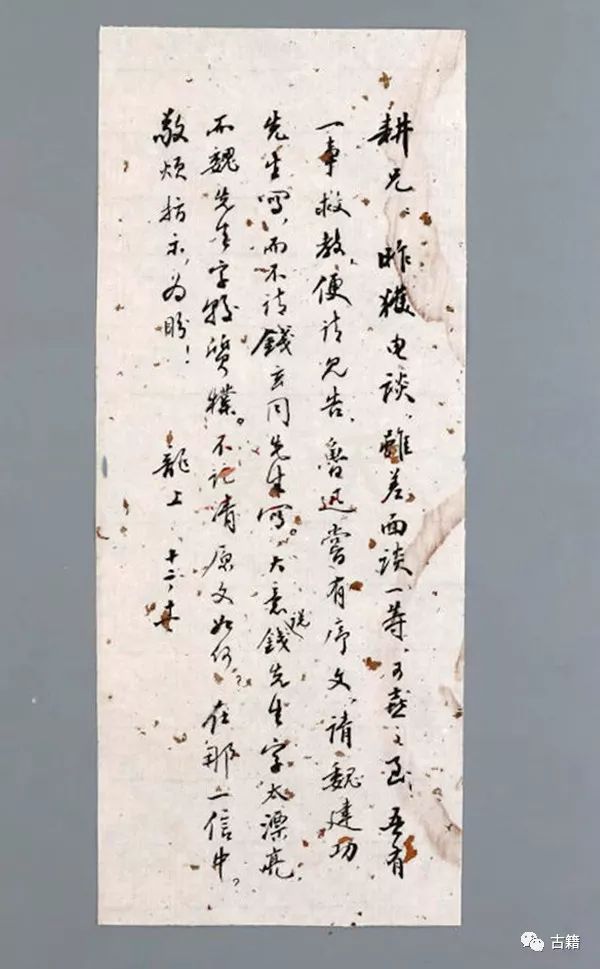 耕兄、昨獲电談、雖差面談一等、可喜之至、吾有
一事救教、便请見告、魯迅嘗有序文、請魏建功
先生寫、而不请錢玄同先生寫。大意說錢先生字太漂亮、
不魏先生字較質樸。不记清原文如何？在那一信中。
敬煩指示、为盼！
龍上 十二、
古籍